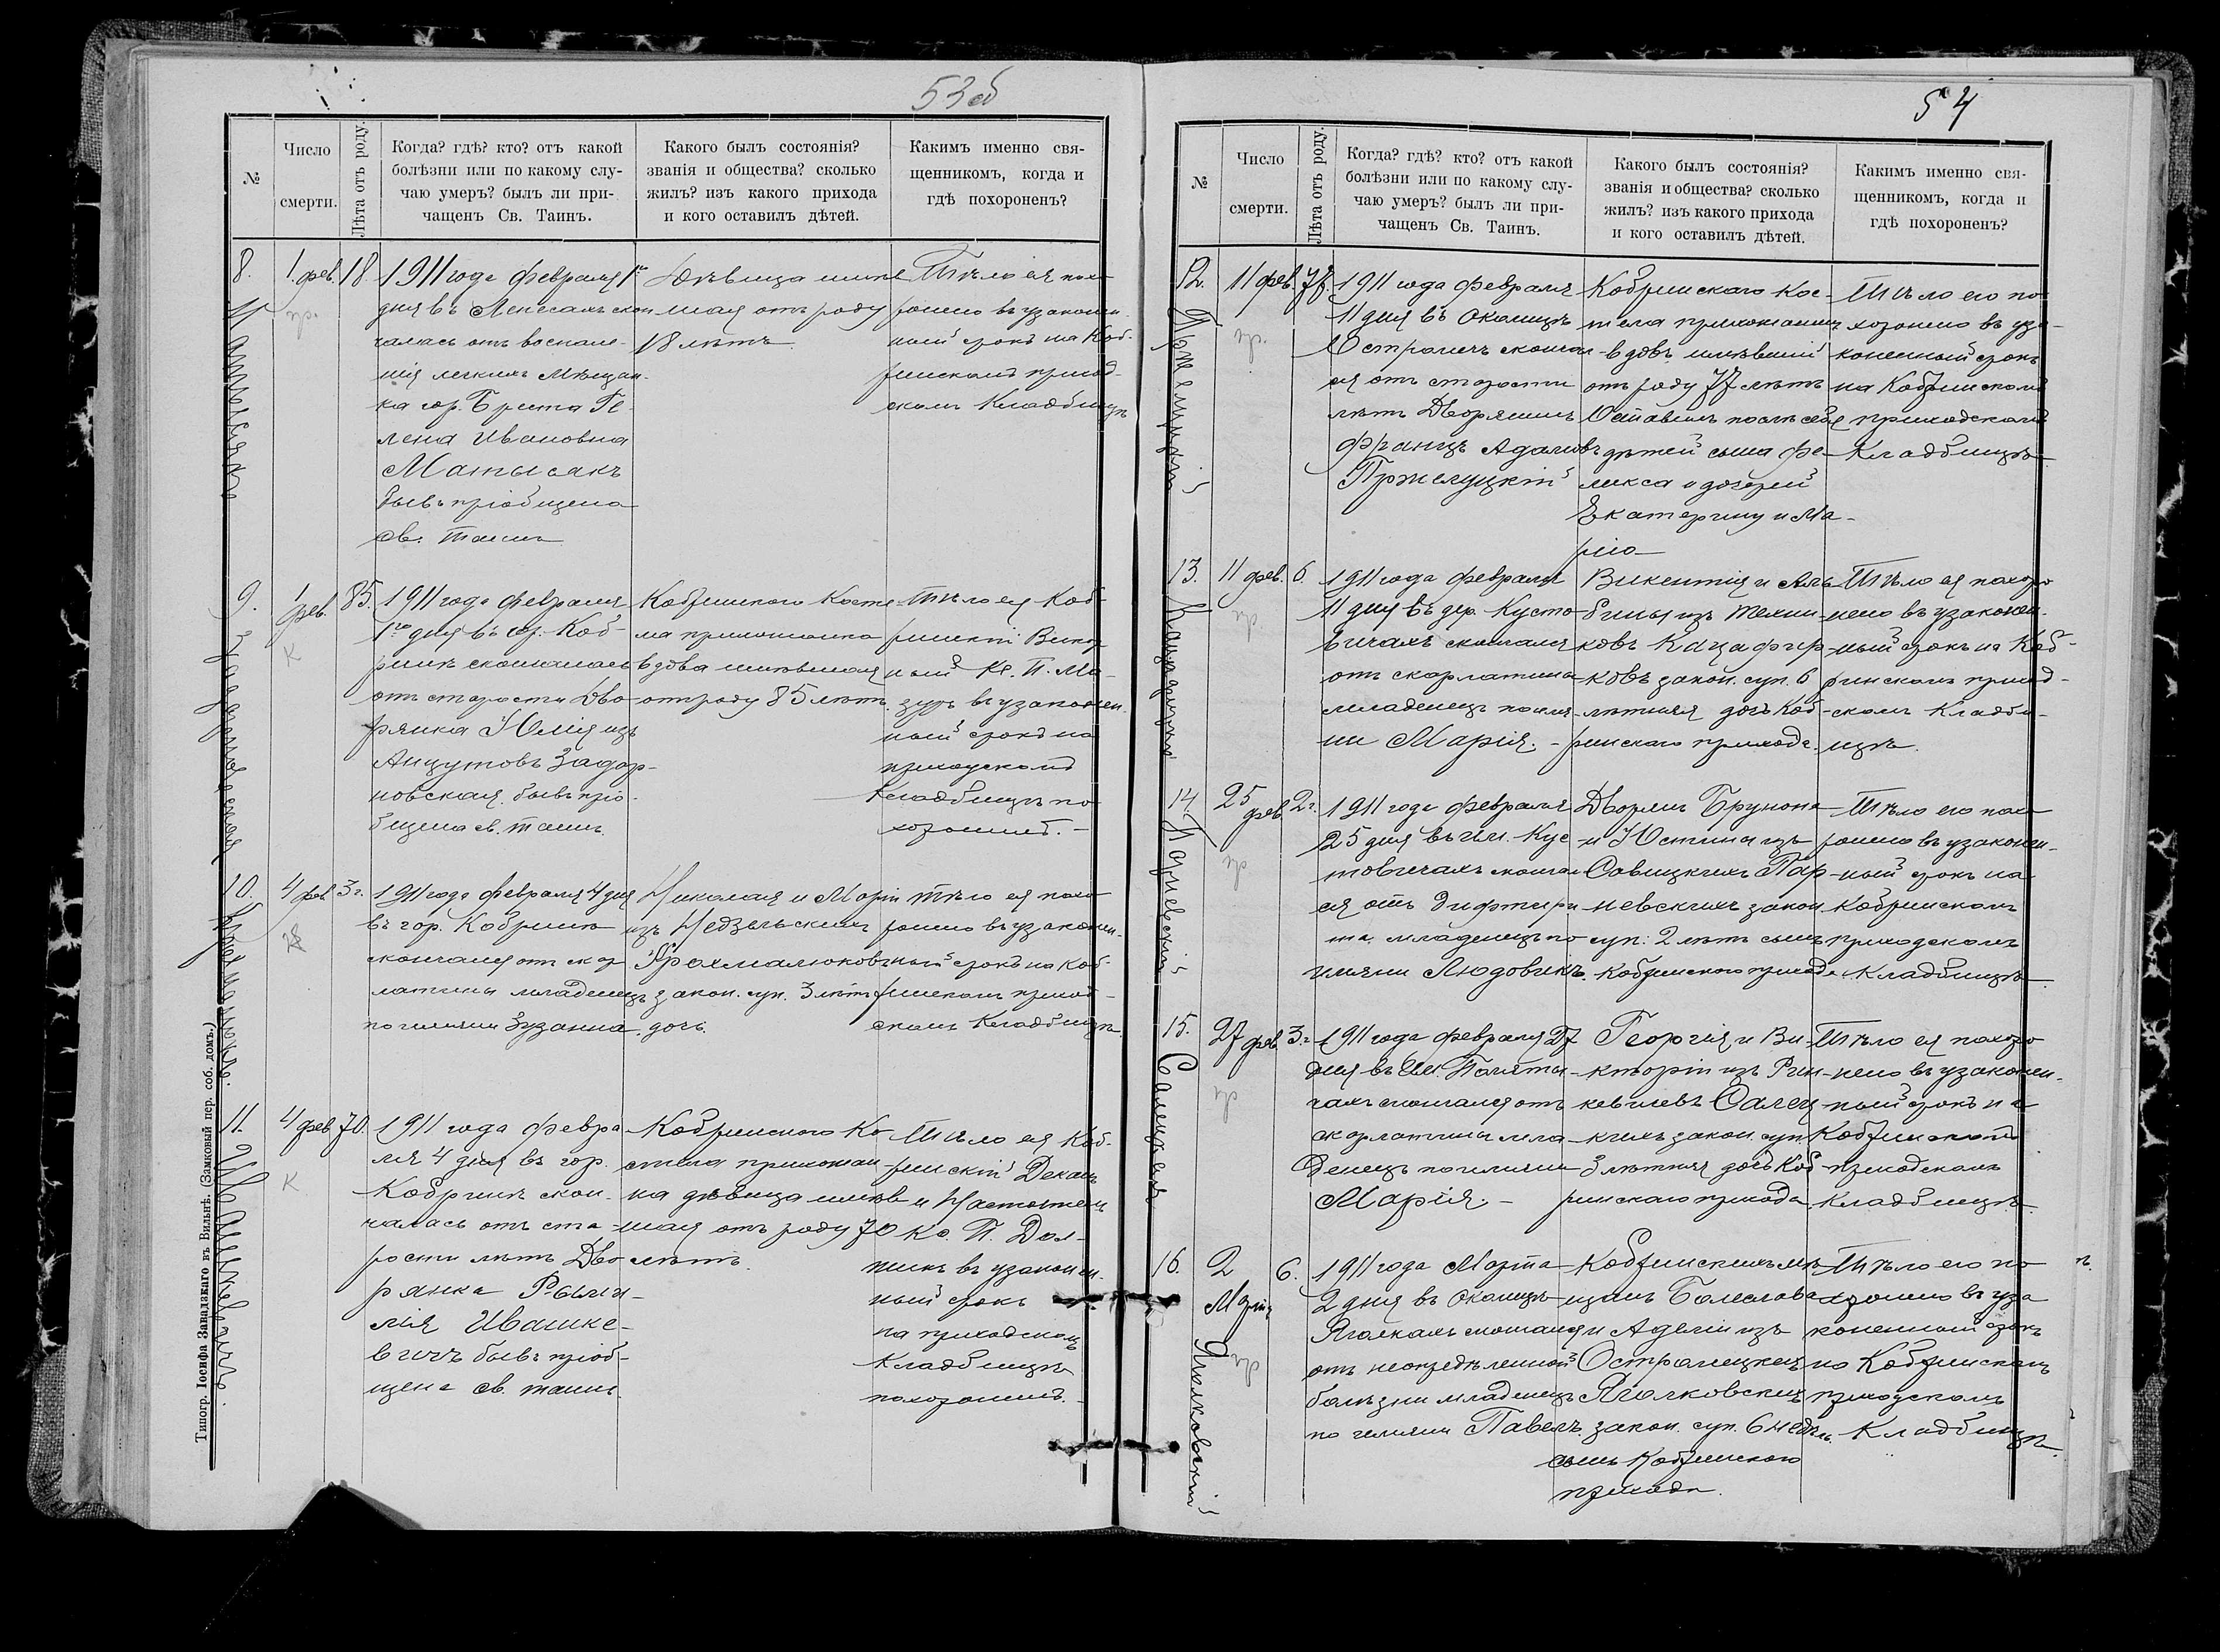 53 об
№
Число
смерти.
Лѣта отъ роду.
Когда? гдѣ? кто? отъ какой
болѣзни или по какому слу-
чаю умеръ? былъ ли при-
чащенъ Св. Таинъ.
Какого былъ состоянія?
званія и общества? сколько
жилъ? изъ какого прихода
и кого оставилъ дѣтей.
Какимъ именно свя-
щенникомъ, когда и
гдѣ похороненъ?
8.
1. фев.
18.
1911 года февраля 1го
дня въ Лепесахъ скон
чалась отъ воспале-
нія легкихъ Мѣщан-
ка гор. Бреста Ге-
лена Ивановна
Матысакъ
бывъ пріобщена
св. таинъ
Дѣвица имѣв
шая отъ роду
18 лѣтъ
Тѣло ея похо
ронено въ узаконен-
ный срокъ на Коб-
ринскомъ приход-
скомъ Кладбищѣ
9.
1 фев.
К
85.
1911 года февраля
1го дня въ гор. Коб-
ринѣ скончалась
отъ старости Дво-
рянка Юлія изъ
Анцутовъ Задар-
новская бывъ прiо-
бщена св. таинъ.
Кобринскаго Косте
ла прихожанка
вдова имѣвшая
отъ роду 85 лѣтъ.
Тѣло ея Коб-
ринскій Викар
ный Кс. П. Ма-
зуръ въ узаконен.
ный срокъ на
приходскомъ
Кладбищѣ по-
хоронилъ. -
10.
4 фев
3 г.
1911 года февраля 4 дня
въ гор. Кобринѣ
скончался отъ скар
латины младенецъ
по имени Зузанна
Николая и Маріи
изъ Недзѣльскихъ
Крахмалюковъ
закон. суп. 3 лѣтъ
дочь.
Тѣло ея похо
ронено въ узаконен-
ный срокъ на Коб
ринскомъ приход-
скомъ Кладбищѣ
11.
4 фев
К
70.
1911 года февра-
ля 4 дня въ гор.
Кобринѣ скон-
чалась отъ ста-
рости лѣтъ Дво
рянка
Ивашке-
вичъ бывъ пріоб-
щена св. таинъ.
Кобринскаго Ко
стела прихожан
ка дѣвица имѣв
шая отъ роду 70
лѣтъ.
Тѣло ея Коб-
ринскій Деканъ
и Настоятель
Кс. П. Дол-
въ узаконен.
ный срокъ
на приходскомъ
Кладбищѣ
похоронилъ. -
Типогр. Іосифа Завадзкаго въ Вильнѣ. (Замковый пер. соб. домъ.)
54
№
Число
смерти.
Лѣта отъ роду.
Когда? гдѣ? кто? отъ какой
болѣзни или по какому слу-
чаю умеръ? былъ ли при-
чащенъ Св. Таинъ.
Какого былъ состоянія?
званія и общества? сколько
жилъ? изъ какого прихода
и кого оставилъ дѣтей.
Какимъ именно свя-
щенникомъ, когда и
гдѣ похороненъ?
12.
Пржелуцкій
11 фев.
77.
1911 года февраля
11 дня въ Околицѣ
Остромечъ сконча-
ся отъ старости
лѣтъ Дворянинъ
Францъ Адамовъ
Пржелуцкій
Кобринскаго Кос-
тела прихожанинъ
вдовъ имѣвшій
отъ роду 77 лѣтъ
Оставилъ послѣ себя
дѣтей сына Фе-
ликса и дочерей
Екатерину и Ма-
рію
Тѣло его по-
хоронено въ уза-
коненный срокъ
на Кобринскомъ
приходскомъ
Кладбищѣ
13.
11 фев.
6.
1911 года февраля
11 дня въ дер. Кусто-
вичахъ скончался
отъ скарлатина
младенецъ по име-
ни Марія. -
Викентія и Аль
бины изъ
ковъ
ковъ закон. суп. 6
лѣтняя дочь Коб-
ринскаго прихода.
Тѣло ея похоро
нено въ узаконен-
ный срокъ на Коб-
ринскомъ приход-
скомъ Кладби-
щѣ.
14.
Парневскій
25 фев
2 г.
1911 года февраля
25 дня въ им. Кус-
товичахъ сконча
ся отъ дифтери-
та младенецъ по
имени Людовикъ.
Дворянъ Брунона
и Юстина изъ
Савицкихъ Пар-
невскихъ закон
суп: 2 лѣтъ сынъ
Кобринскаго прихода
Тѣло его похо
ронено въ узаконен-
ный срокъ на
Кобринскомъ
приходскомъ
Кладбищѣ.
15.
Салецкая
27 фев
3 г.
1911 года февраля 27
дня въ им. Поляты-
чахъ скончался отъ
скарлатины мла-
денецъ по имени
Марія. -
Георгія и Ви-
кторіи изъ Рин-
кевичевъ Салец-
кихъ закон. суп.
3 лѣтняя дочь Коб
ринскаго прихода.
Тѣло ея похоро
нено въ узаконен-
ный срокъ на
Кобринскомъ
приходскомъ
Кладбищѣ
16.
Ягилковскій
2
Марта
6.
1911 года Марта
2 дня въ Околицѣ
Ягелкахъ скончался
отъ неопредѣленной
болѣзни младенецъ
по имени Павелъ.
Кобринскихъ мѣ-
щанъ Болеслава
и Адели изъ
Остромецкихъ
Яголковскихъ
закон. суп. 6 недѣль.
сынъ Кобринскаго
прихода.
Тѣло его по
хоронено въ уза
коненный срокъ
на Кобринскомъ
приходскомъ
Кладбищѣ.